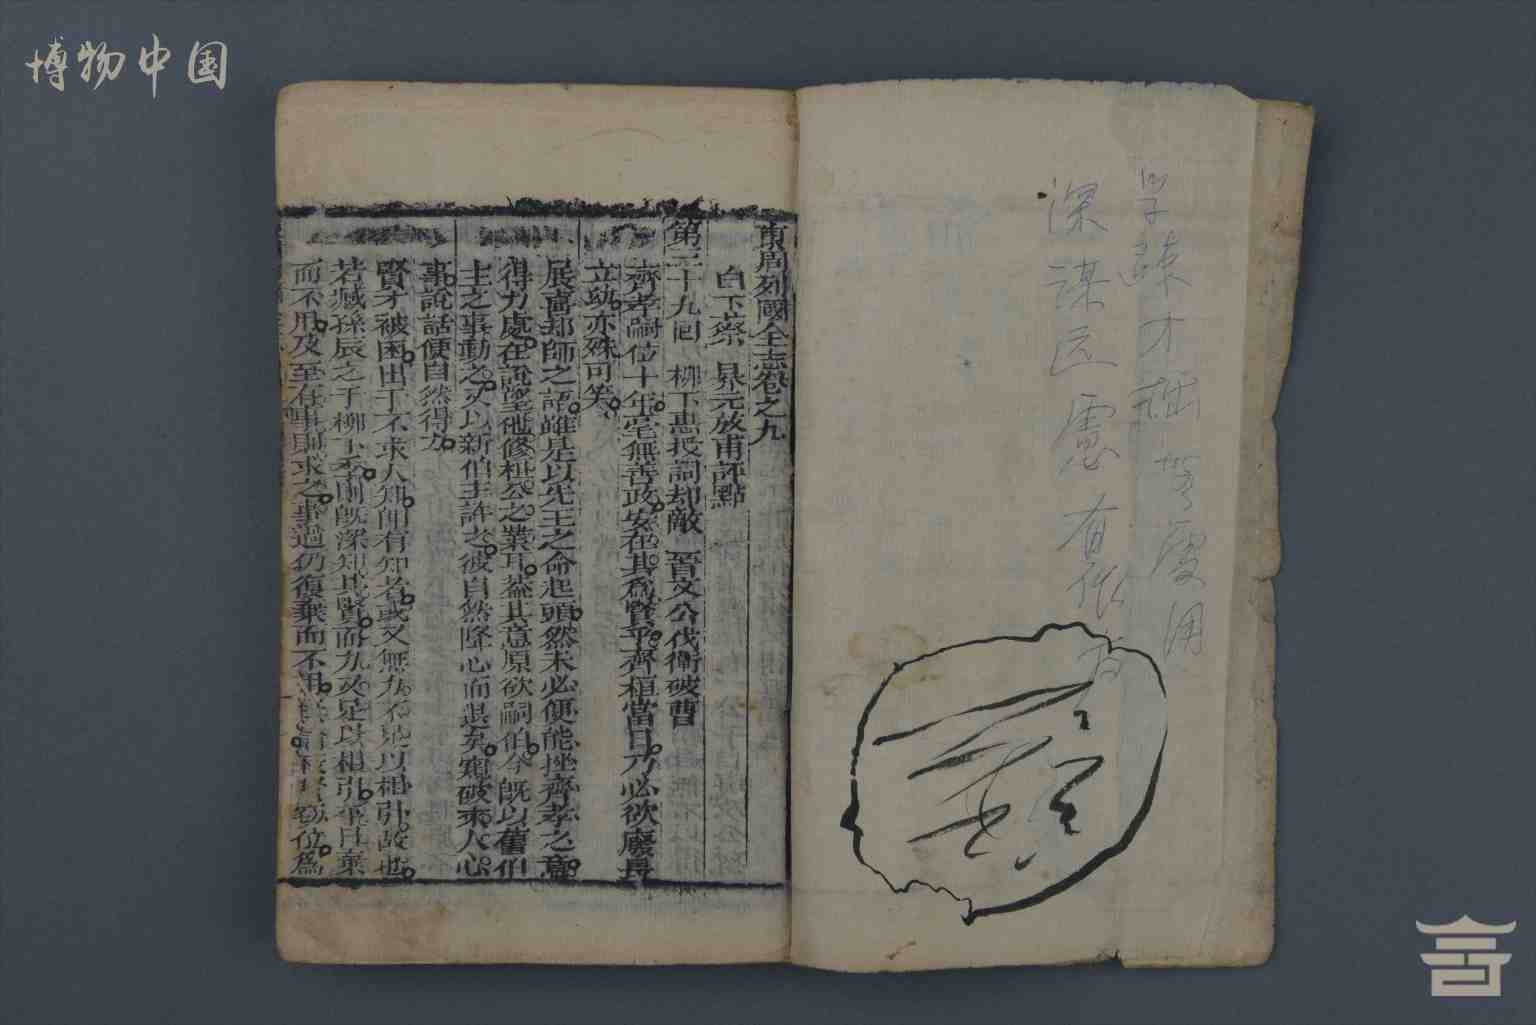 博物中国
學疎才拙無處用
深謀远慮有依
東周列國全志卷之九
白下蔡 昇元放甫評點
第三十九回 柳下惠授詞却敵 晉文公伐衛破曹
齊孝嗣位十年毫無善政安在其為賢乎齊桓當日乃必欲廢長
立幼亦殊可笑
展喜却師之語雖是以先王之命起頭然未必便能挫齊孝之意
得力處在說望他修桓公之業耳蓋其意原欲嗣伯今既以舊伯
主之事動之又以新伯主許之彼自然降心而退矣窺破來人心
事說話便自然得力
賢才被困由于不求人知間有知者或又無力不足以相引故也
若臧孫辰之于柳下季則既深知其賢而力又足以相引乃甘棄
而不用及至有事則求之事過仍復棄而不用 位為